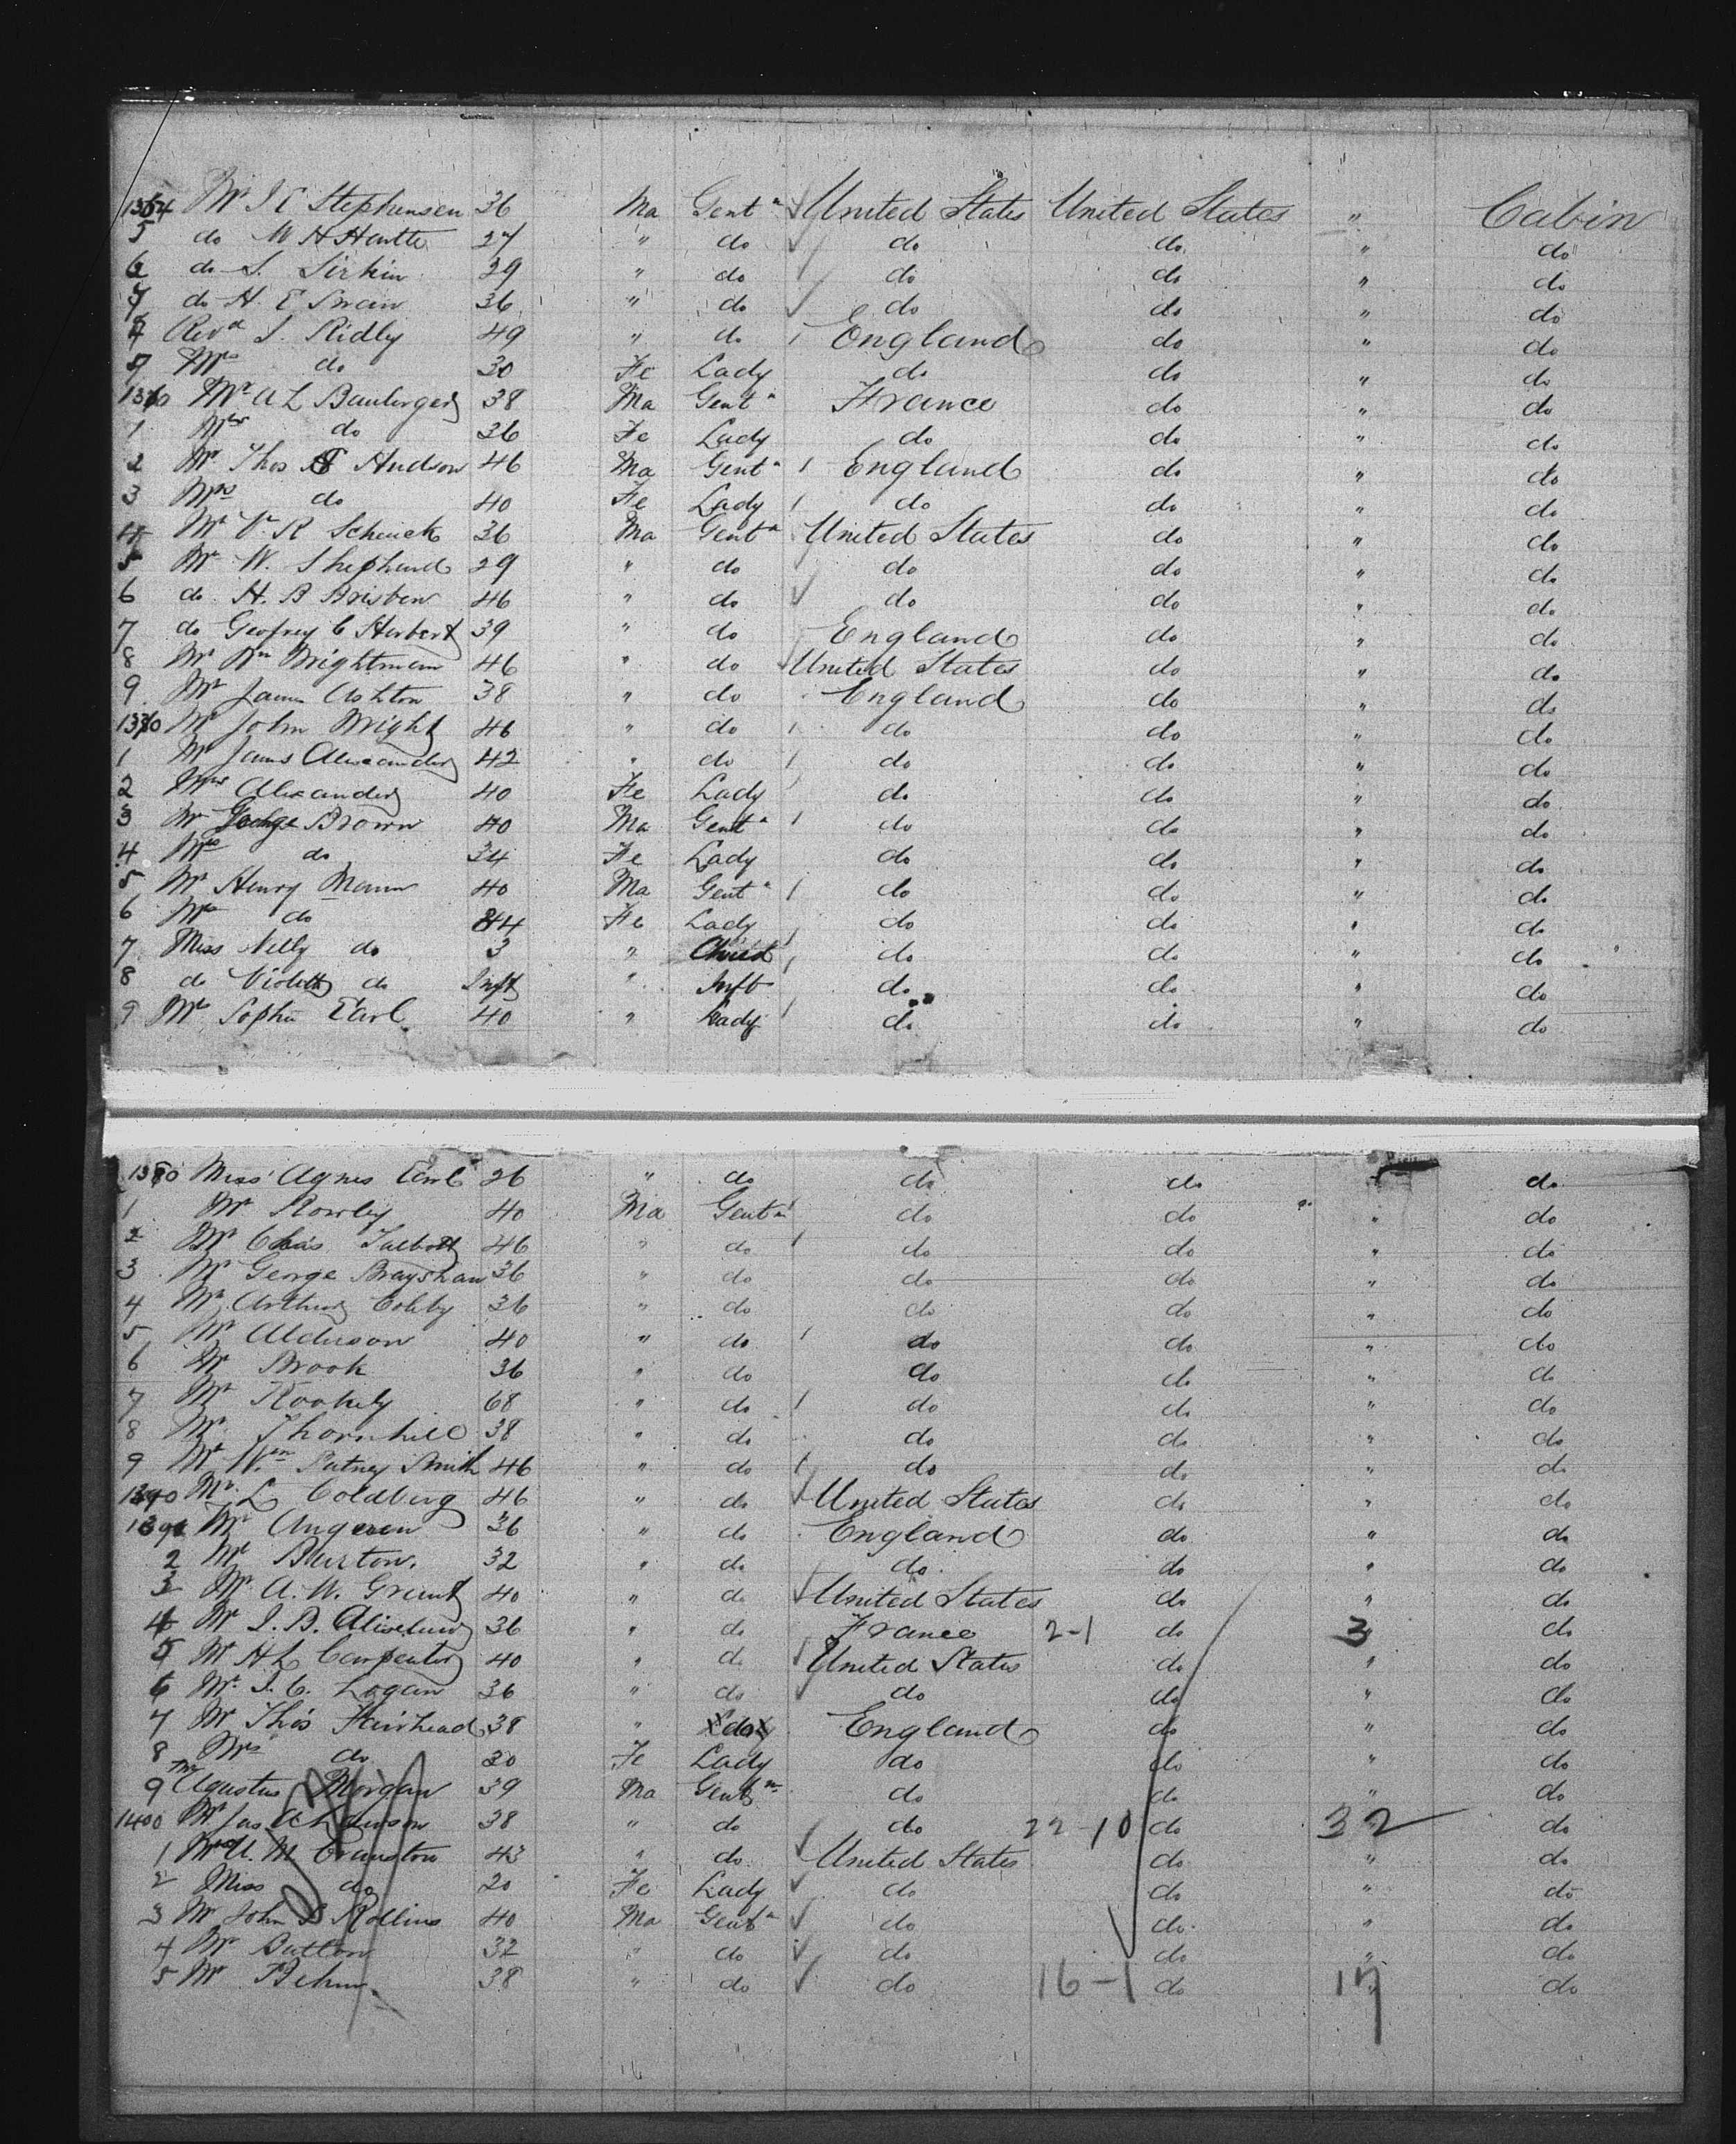 1354 Mr J E Stephensen 36 Ma Gentn United States United States " Cabin
5 do W H 27 " do do do " do
6 do S. Sirkin 29 " do do do " do
7 do H. E Swain 36 " do do do " do
Revd S. Ridly 49 " do England do " do
9 Mrs do 30 Fe Lady do do " do
1360 Mr A L 38 Ma Gentn France do " do
1 Mrs do 36 Fe Lady do do " do
2 Mr Thos Hudson 46 Ma Gentn England do " do
3 Mrs do 40 Fe Lady do do " do
4 Mr V. R Schenck 36 Ma Gentn United States do " do
5 Mr W. Shephard 29 " do do do " do
6 do H. B Brisben 46 " do do do " do
7 do Geofrey C Herbert 39 " do England do " do
8 Mr Wm Wrightman 46 " do United States do " do
9 Mr James Ashton 38 " do England do " do
1370 Mr John Wright 46 " do do do " do
1 Mr James Alexander 42 " do do do " do
2 Mrs Alexander 40 Fe Lady do do " do
3 Mr George Brown 40 Ma Gentn do do " do
4 Mrs do 34 Fe Lady do do " do
5 Mr Henry Mann 40 Ma Gentn do do " do
6 Mrs do 44 Fe Lady do do " do
7 Miss Nelly do 3 " Child do do " do
8 do Violett do Inft " Inft do do " do
9 Mrs Sophie Earl 40 " Lady do do " do
1380 Miss Agnes Earl 26 " do do do " do
1 Mr Rowley 40 Ma Gentn do do " do
2 Mr Chas Talbott 46 " do do do " do
3 Mr George Brayshaw 36 " do do do " do
4 Mr Arthur Colby 36 " do do do " do
5 Mr Alderson 40 " do do do " do
6 Mr Brook 36 " do do do " do
7 Mr 68 " do do do " do
8 Mr Thornhill 38 " do do do " do
9 Mr Wm Putney Smith 46 " do do do " do
1390 Mr L Goldberg 46 " do United States do " do
1391 Mr 36 " do England do " do
2 Mr Burton. 32 " do do do " do
3 Mr A. W. Grant 40 " do United States do " do
4 Mr J. B. 36 " do France 2-1 do 3 do
5 Mr H L Carpenter 40 " do United States do " do
6 Mr J. C. Logan 36 " do do do " do
7 Mr Thos Fairhead 38 " do England do " do
8 Mrs do 30 Fe Lady do do " do
9 Mr Agustus Morgan 39 Ma Gentn do do " do
1400 Mr Jas A Lawson 38 " do do 22-10 do 32 do
1 Mr U. M Cranston 43 " do United States do " do
2 Miss do 20 Fe Lady do do " do
3 Mr John Rollins 40 Ma Gentn do do " do
4 Mr Button 32 " do do do " do
5 Mr Behm 38 " do do 16-1 do 17 do